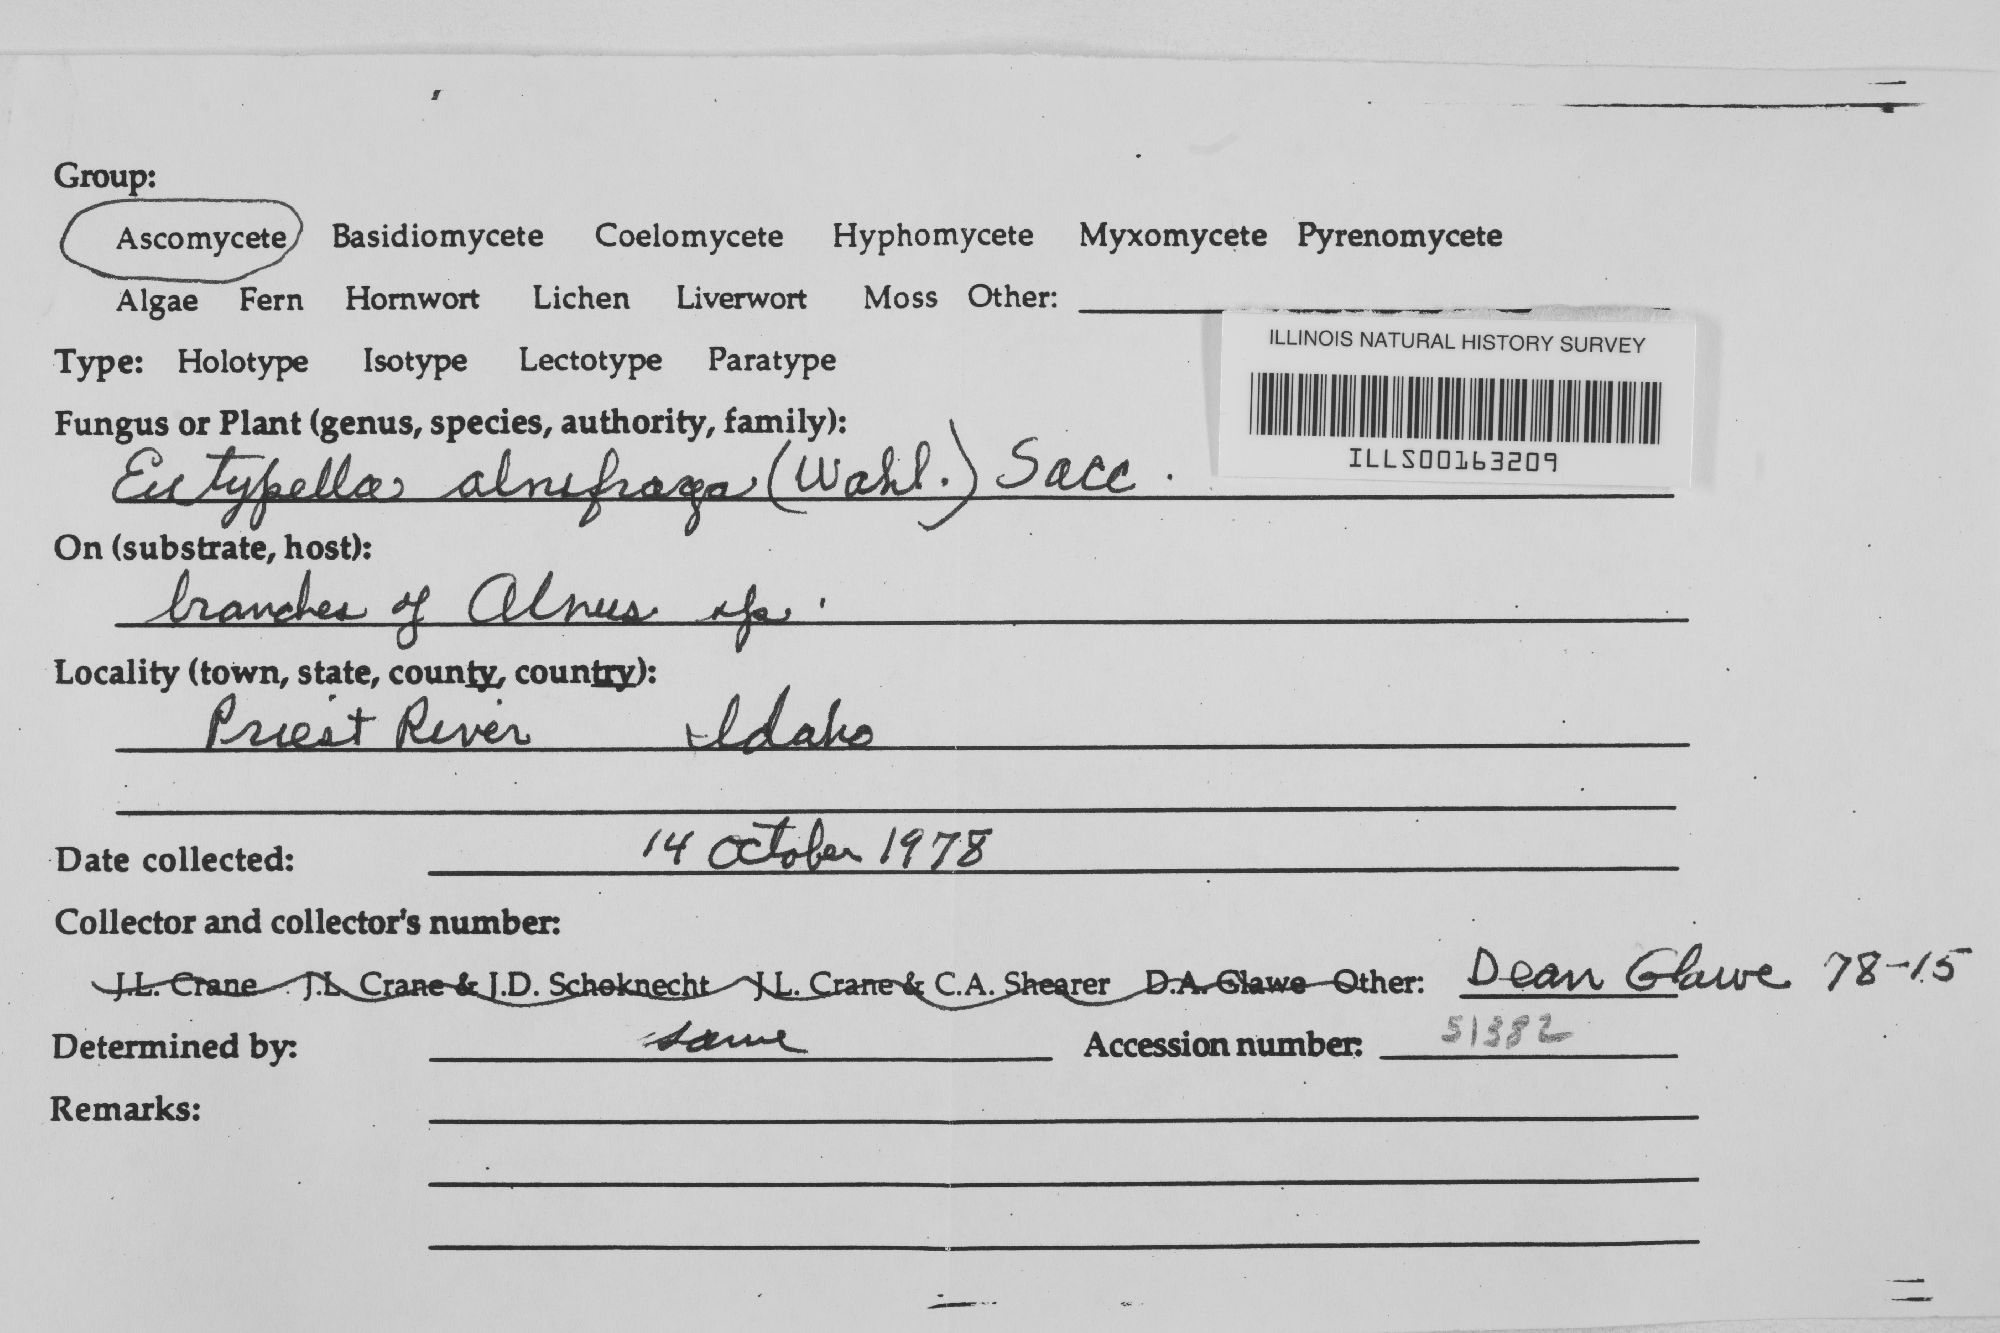 Group:
Ascomycete Basidiomycete Coelomycete Hyphomycete Myxomycete Pyrenomycete
Algae Fern Hornwort Lichen Liverwort Moss Other:
Type: Holotype Isotype Lectotype Paratype
ILLINOIS NATURAL HISTORY SURVEY
ILLS00163209
Fungus or Plant (genus, species, authority, family):
Eutypella alnifraga (Wahl.) Sacc.
On (substrate, host):
branches of Alnus sp.
Locality (town, state, county, country):
Priest River Idaho
Date collected: 14 October 1978
Collector and collector's number:
J.L. Crane J.L. Crane & J.D. Schoknecht J.L. Crane & C.A. Shearer D.A. Glawe Other: Dean Glawe 78-15
Determined by: same Accession number: 51382
Remarks: